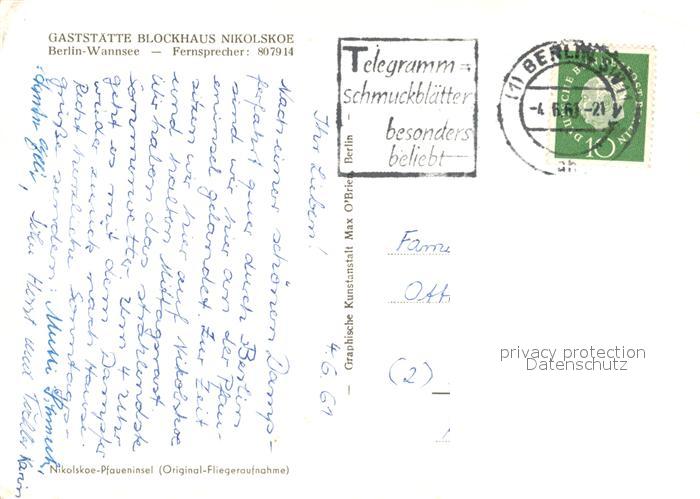 GASTSTÄTTE BLOCKHAUS NIKOLSKOE
Berlin-Wannsee — Fernsprecher: 807914
Telegramm=
schmuckblätter
besonders
beliebt
(1) BERLIN SW11
-4. 6. 61.-21
DEUTSCHE BUNDESPOST BERLIN
10
4.6.61
Ihr Lieben!
Nach einer schönen Damp-
ferfahrt quer durch Berlin
sind wir hier an der Pfau-
eninsel gelandet. Zur Zeit
sitzen wir hier auf Nikolskoe
und halten Mittagsrast.
Wir haben das strahlendste
Sommerwetter. Um 4 Uhr
geht es mit dem Dampfer
wieder zurück nach Hause.
Recht herzliche Sonntags-
grüße senden: Mutti
Sohn Horst und Tochter Karin
— Graphische Kunstanstalt Max O'Brien, Berlin —
Fam
Ott
(2)
privacy protection
Datenschutz
Nikolskoe-Pfaueninsel (Original-Fliegeraufnahme)